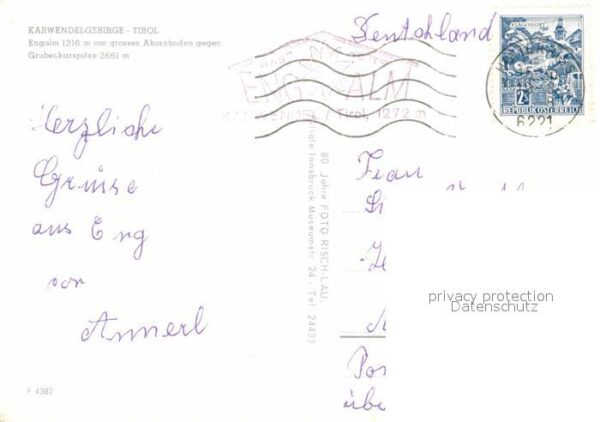 KARWENDELGEBIRGE - TIROL
Engalm 1216 m am grossen Ahornboden gegen
Grubenkarspitze 2661 m
Deutschland
ENG ALM
KARWENDEL / Tirol, 1272 m
KLAGENFURT
2S
REPUBLIK ÖSTERREICH
6221
Herzliche
Grüsse
aus Eng
von
Annerl
80 Jahre FOTO RISCH-LAU,
Filiale Innsbruck Museumstr. 24 - Tel. 24433
Frau
privacy protection
Datenschutz
F 4382